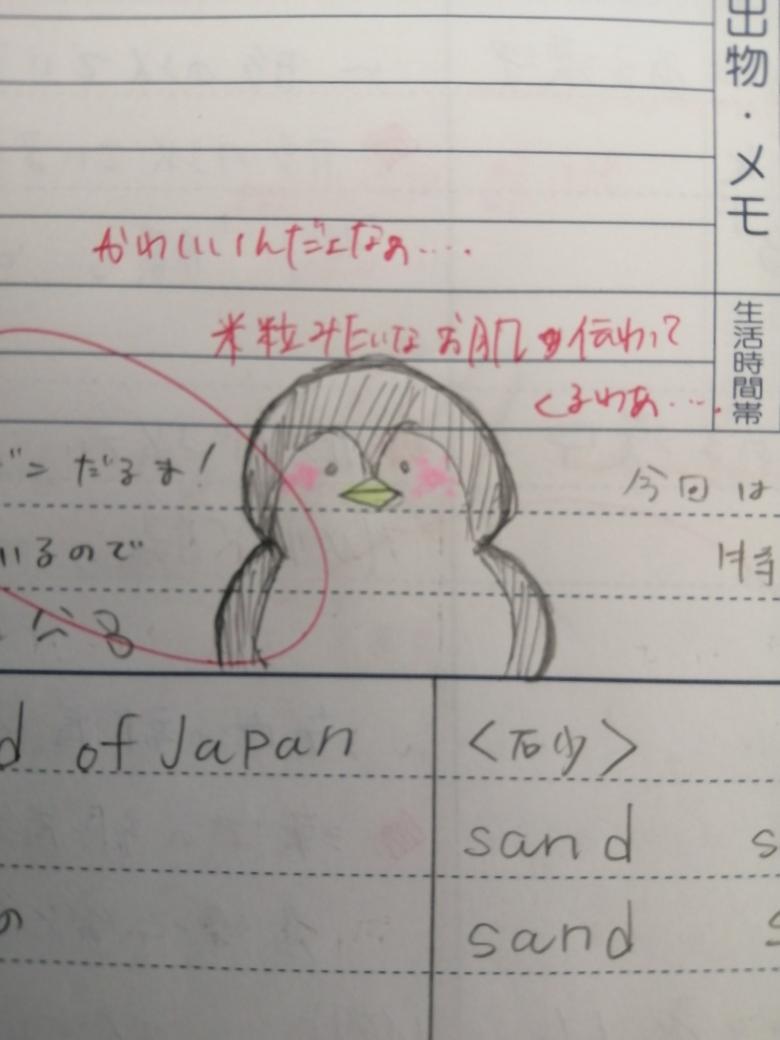 出物・メモ
かわいいんだよなぁ....
生活時間帯
米粒みたいなお肌が伝わって
くるわぁ....
だるま!
今回は
いるので
特
d of Japan
<砂>
sand s
の
sand s